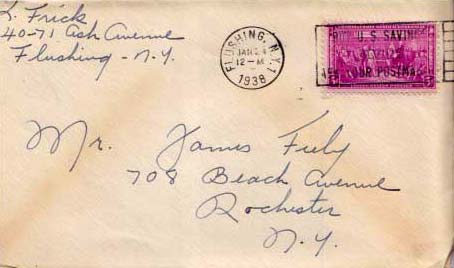 L. Frick
40-71 Ash Avenue
Flushing - N.Y.
FLUSHING, N.Y. 1
JAN 4
12-M
1938
U.S. SAVIN
YOUR POSTMA
Mr. James Fuly
708 Beach Avenue
Rochester
N.Y.